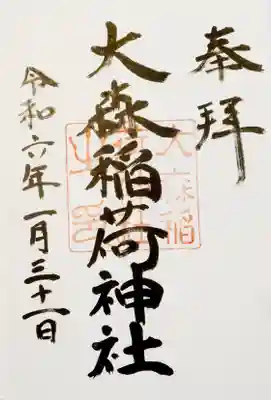 奉拝
大森稲荷神社
令和六年一月三十一日
大森稲
荷神社
之印